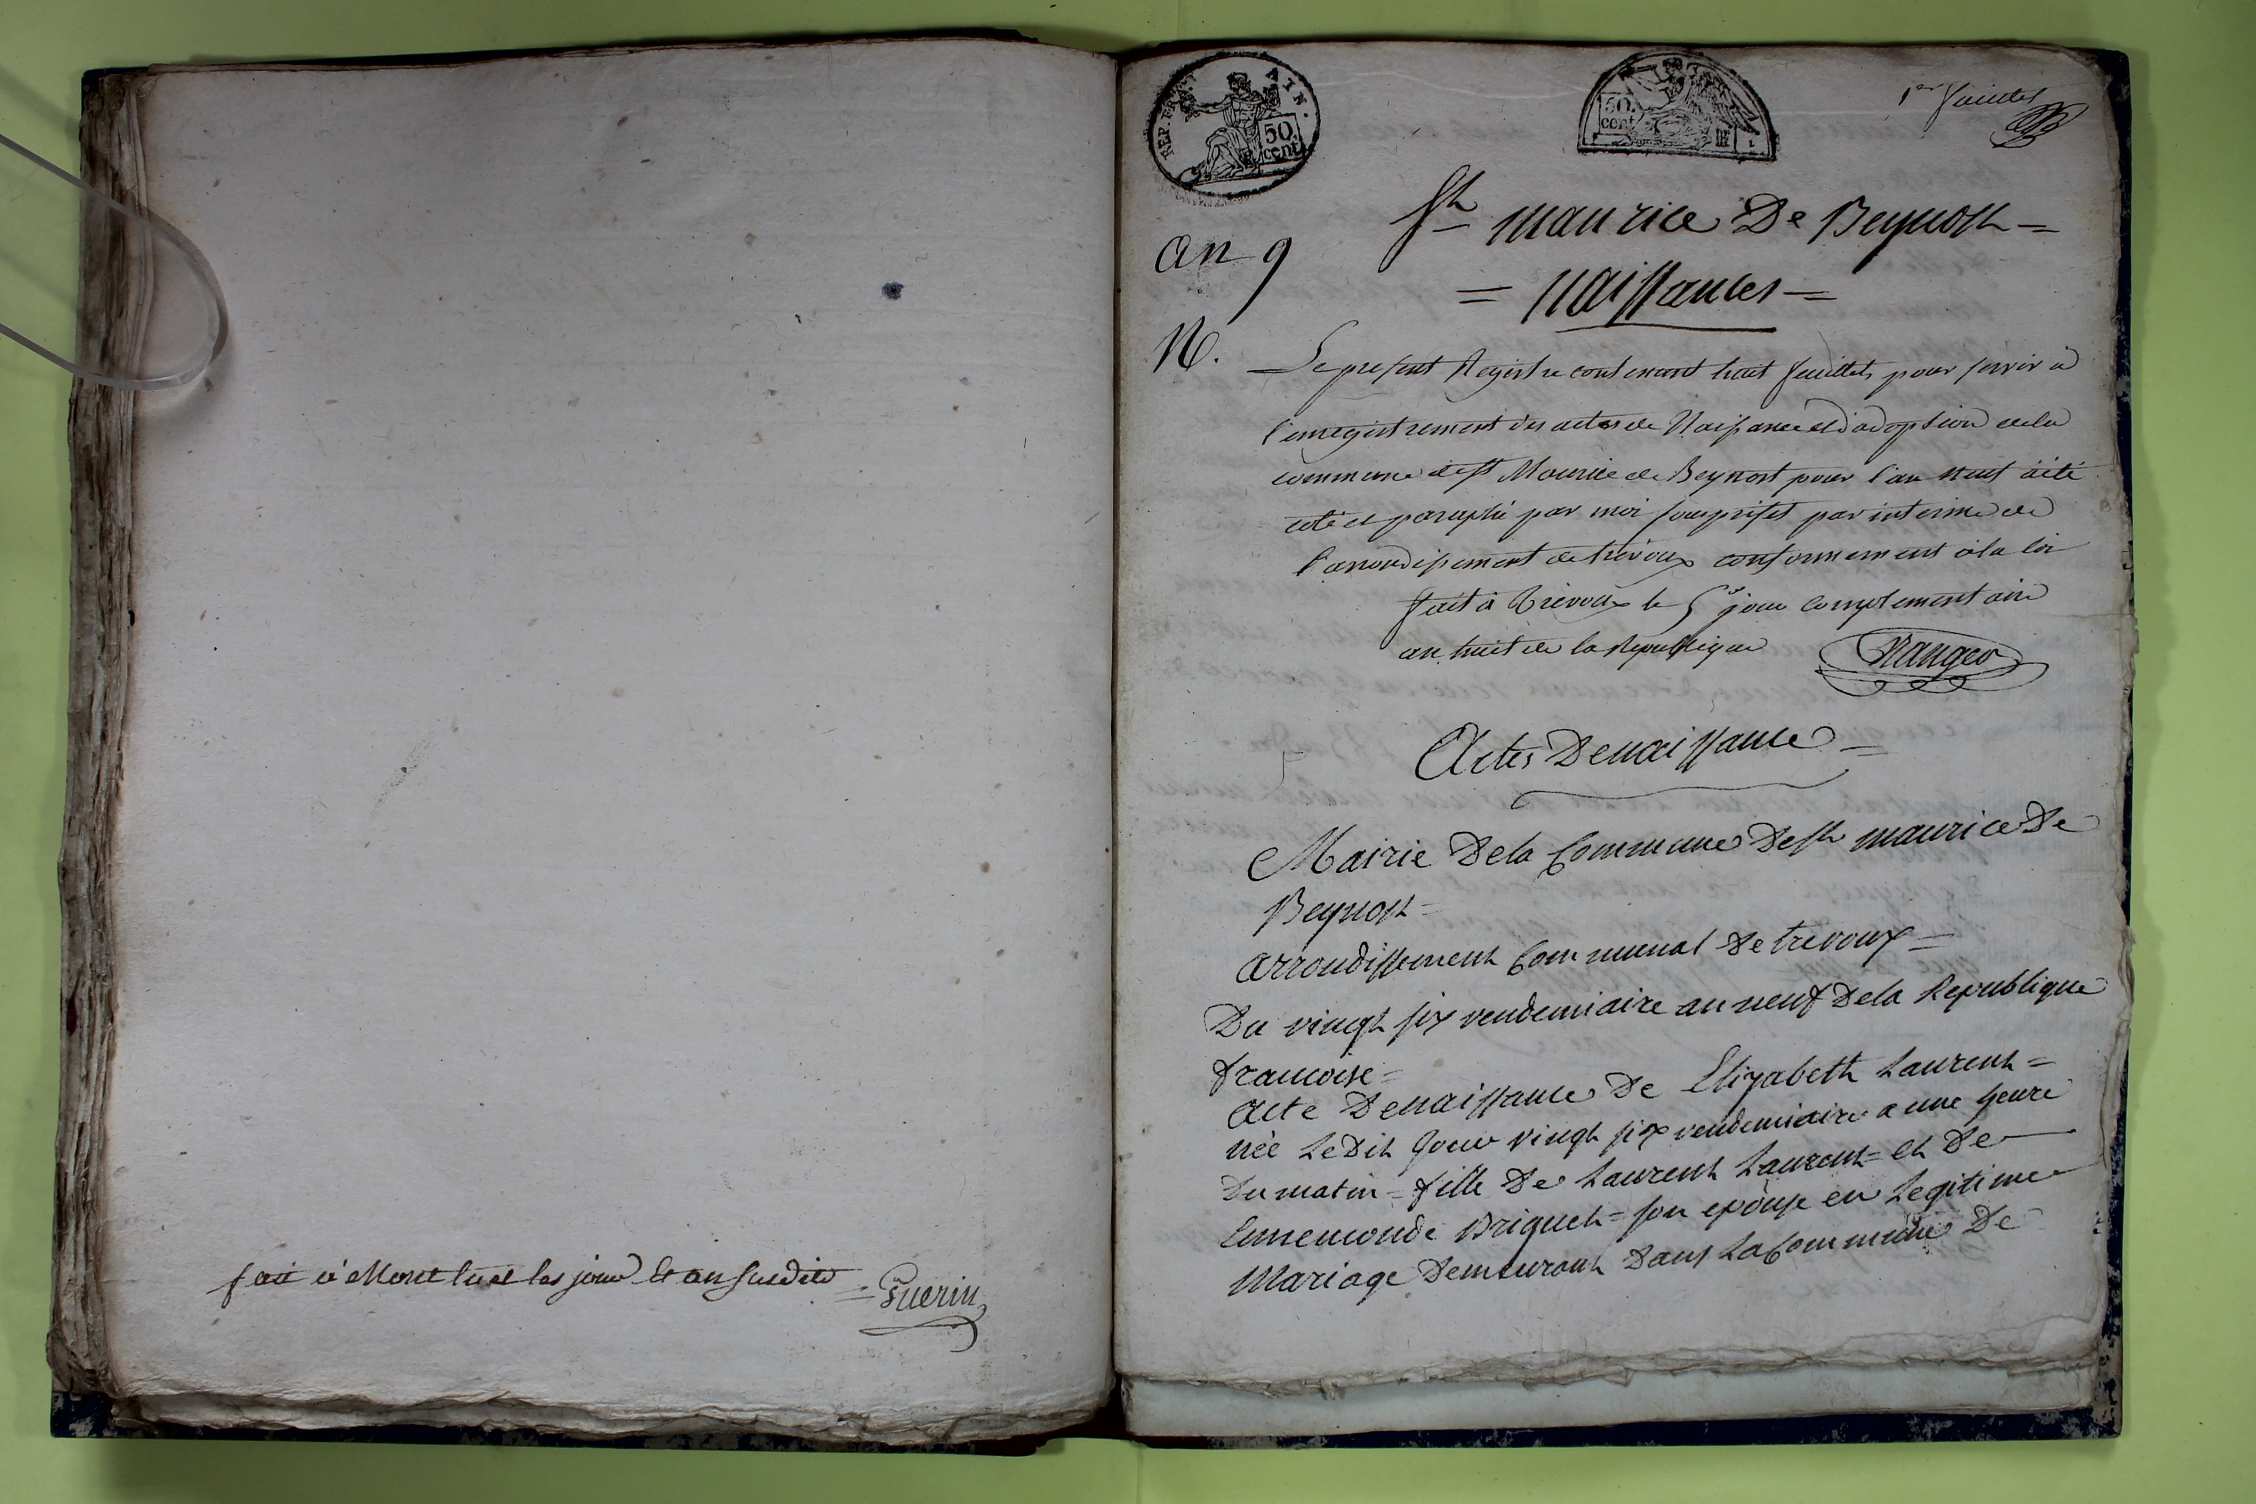 fait à Montluel les jour et an susdits
Guerin
REP. FRA. AIN.
50. cent
50. cent
1er feuillet
St maurice De Beynost =
an 9
= naissances =
N.
Le present Registre contenant huit feuillets pour servir à
l'enregistrement des actes de Naissance et d'adoption de la
commune de St Maurice de Beynost pour l'an neuf à été
coté et paraphé par moi sousprefet par interim de
l'arrondissement de trévoux conformement à la loi
fait à Trévoux le 5e jour complementaire
an huit de la Republique
Actes De naissance =
Mairie De la Commune De St maurice De
Beynost =
arrondissement Communal De trevoux =
Du vingt six vendemiaire an neuf De la Republique
francoise =
acte De naissance De Elizabeth Laurent =
née Le Dit Jour vingt six vendemiaire a une heure
Du matin = fille De Laurent Laurent = et De
Ennemonde Briquet = son epouse en Legitime
Mariage Demeurant Dans La Commune De